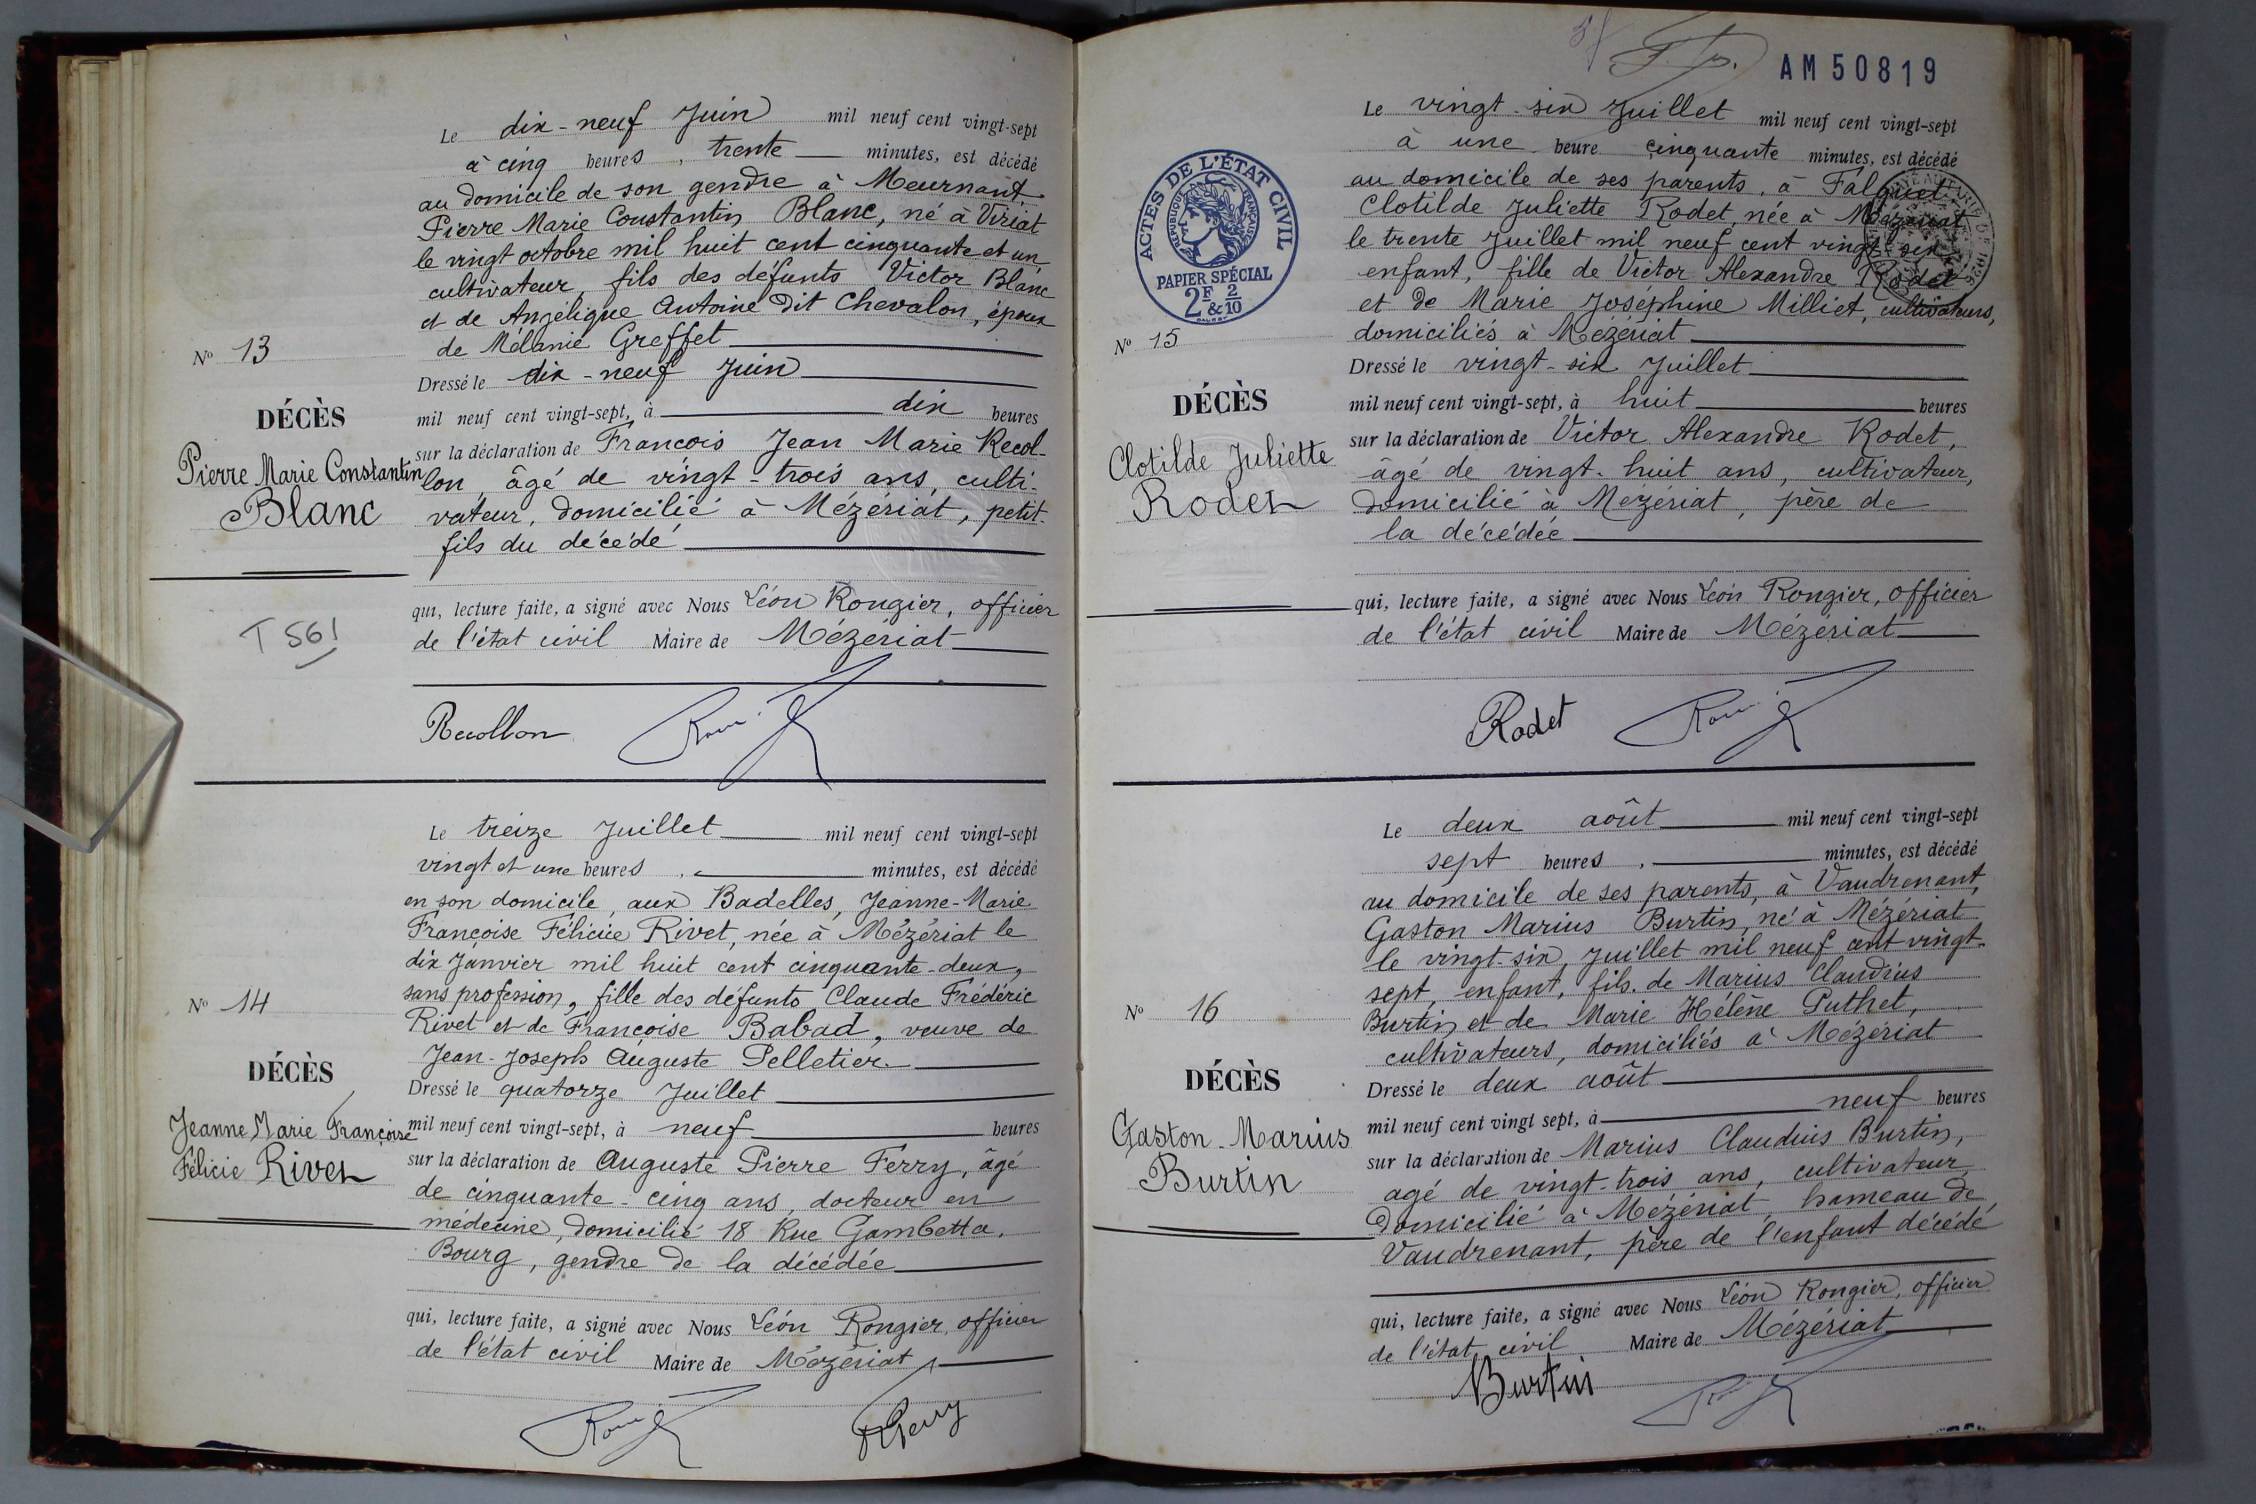 Le dix-neuf Juin mil neuf cent vingt-sept
à cinq heures, trente minutes, est décédé
au domicile de son gendre à Meurnant,
Pierre Marie Constantin Blanc, né à Viriat
le vingt octobre mil huit cent cinquante et un,
cultivateur, fils des défunts Victor Blanc
et de Angélique Antoine dit Chevalon, époux
de Mélanie Greffet
Dressé le dix-neuf Juin
mil neuf cent vingt-sept, à dix heures
sur la déclaration de François Jean Marie Recol-
lon, âgé de vingt-trois ans, culti-
vateur, domicilié à Mézériat, petit-
fils du décédé
qui, lecture faite, a signé avec Nous Léon Rongier, officier
de l'état civil Maire de Mézériat
Recollon
No 13
DÉCÈS
Pierre Marie Constantin
Blanc
T 561
Le treize Juillet mil neuf cent vingt-sept
vingt et une heures, minutes, est décédé
en son domicile, aux Badelles, Jeanne-Marie
Françoise Félicie Rivet, née à Mézériat le
dix Janvier mil huit cent cinquante-deux,
sans profession, fille des défunts Claude Frédéric
Rivet et de Françoise Babad, veuve de
Jean-Joseph Auguste Pelletier.
Dressé le quatorze Juillet
mil neuf cent vingt-sept, à neuf heures
sur la déclaration de Auguste Pierre Ferry, âgé
de cinquante-cinq ans, docteur en
médecine, domicilié 18 Rue Gambetta,
Bourg, gendre de la décédée
qui, lecture faite, a signé avec Nous Léon Rongier, officier
de l'état civil Maire de Mézériat
No 14
DÉCÈS
Jeanne Marie Françoise
Félicie Rivet
AM 50819
Le vingt-six Juillet mil neuf cent vingt-sept
à une heure cinquante minutes, est décédé
au domicile de ses parents, à
Clotilde Juliette Rodet, née à Mézériat
le trente Juillet mil neuf cent vingt-six
enfant, fille de Victor Alexandre Rodet
et de Marie Joséphine Milliet, cultivateurs,
domiciliés à Mézériat
Dressé le vingt-six Juillet
mil neuf cent vingt-sept, à huit heures
sur la déclaration de Victor Alexandre Rodet,
âgé de vingt-huit ans, cultivateur,
domicilié à Mézériat, père de
la décédée
qui, lecture faite, a signé avec Nous Léon Rongier, officier
de l'état civil Maire de Mézériat
Rodet
ACTES DE L'ÉTAT CIVIL
RÉPUBLIQUE FRANÇAISE
PAPIER SPÉCIAL
2F & 2/10
No 15
DÉCÈS
Clotilde Juliette
Rodet
Le deux août mil neuf cent vingt-sept
sept heures, minutes, est décédé
au domicile de ses parents, à Vaudrenant,
Gaston Marius Burtin, né à Mézériat
le vingt-six Juillet mil neuf cent vingt-
sept, enfant, fils de Marius Claudius
Burtin et de Marie Hélène Puthet,
cultivateurs, domiciliés à Mézériat
Dressé le deux août
mil neuf cent vingt sept, à neuf heures
sur la déclaration de Marius Claudius Burtin,
agé de vingt-trois ans, cultivateur,
domicilié à Mézériat, hameau de
Vaudrenant, père de l'enfant décédé
qui, lecture faite, a signé avec Nous Léon Rongier, officier
de l'état civil Maire de Mézériat
Burtin
No 16
DÉCÈS
Gaston-Marius
Burtin